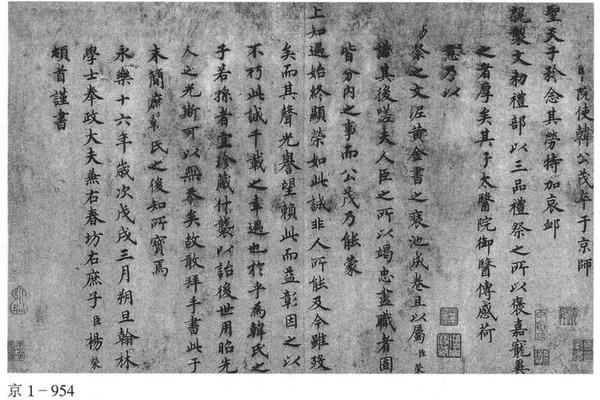 院使韓公茂卒于京師
聖天子於念其勞特加哀卹
親製文勑禮部以三品禮祭之所以褒嘉寵異
之者厚矣其子太醫院御醫傳感荷
恩乃以
祭之文泥黃金書之褒池成卷且以屬臣榮
識其後嗟夫人臣之所以竭忠盡職者固
皆分內之事而公茂乃能蒙
上知遇始終顯榮如此誠非人所能及今雖歿
矣而其聲光譽望賴此而益彰因之以
不朽此誠千載之幸遇也於乎為韓氏之
子若孫者宜珍藏付襲以詒後世用昭先
人之光斯可以無忝矣故敢拜手書此于
末簡庶韓氏之後知所寶焉
永樂十六年歲次戊戌三月朔旦翰林
學士奉政大夫兼右春坊右庶子臣楊榮
頓首謹書
京1-954